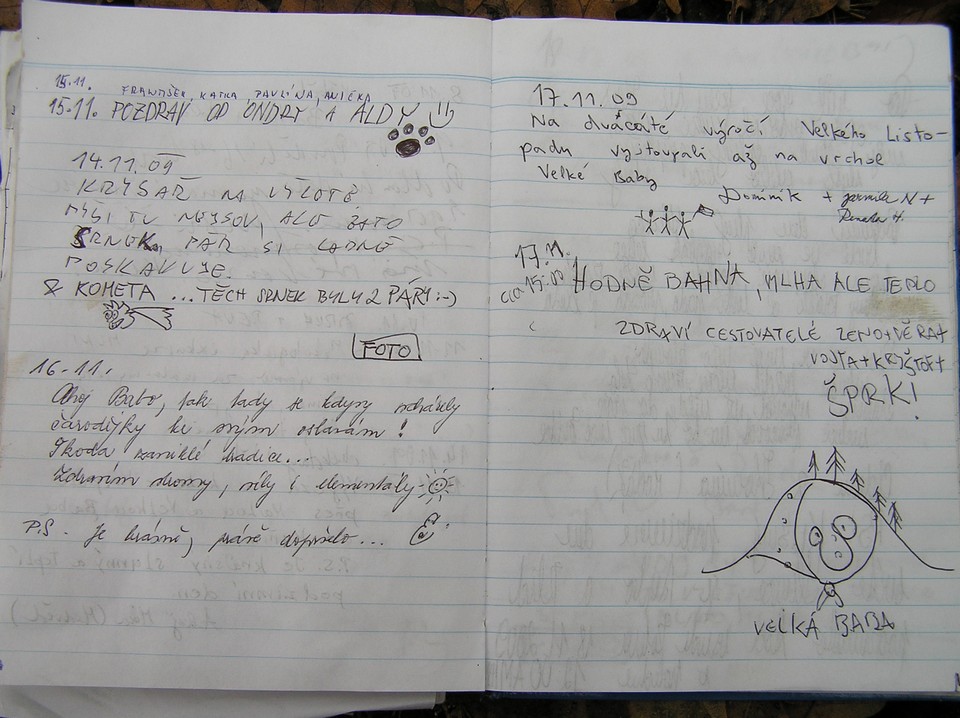 15.11. FRANTIŠEK, KATKA PAVLÍNA, ANIČKA
15.11. POZDRAV OD ONDRY A ALDY
14.11.09
KRYSAŘ NA VÝLETĚ
MYŠI TU NEJSOU, ALE ZATO
SRNEK, PÁR SI LADNĚ
POSKAKUJE.
& KOMETA ... TĚCH SRNEK BYLY 2 PÁRY :-)
FOTO
16.11.
Ahoj Babo, tak tady se kdysy scházely
čarodějky ke svým oslavám!
Škoda zaniklé tradice...
Zdravím stromy, víly i elementály
P.S. Je krásně, právě dopršelo...
17.11.09
Na dvacáté výročí Velkého Listo-
padu vystoupali až na vrchol
Velké Baby
Dominik + Jarmila N +
Renata H
17.11.
cca 15:50 HODNĚ BAHNA, MLHA ALE TEPLO
ZDRAVÍ CESTOVATELÉ ZENO+VĚRA+
VOJTA+KRYŠTOF+
ŠPRK!
VELKÁ BABA